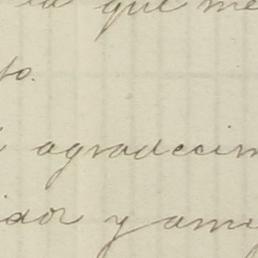 la que me
to.
i agradecim
idor y ami